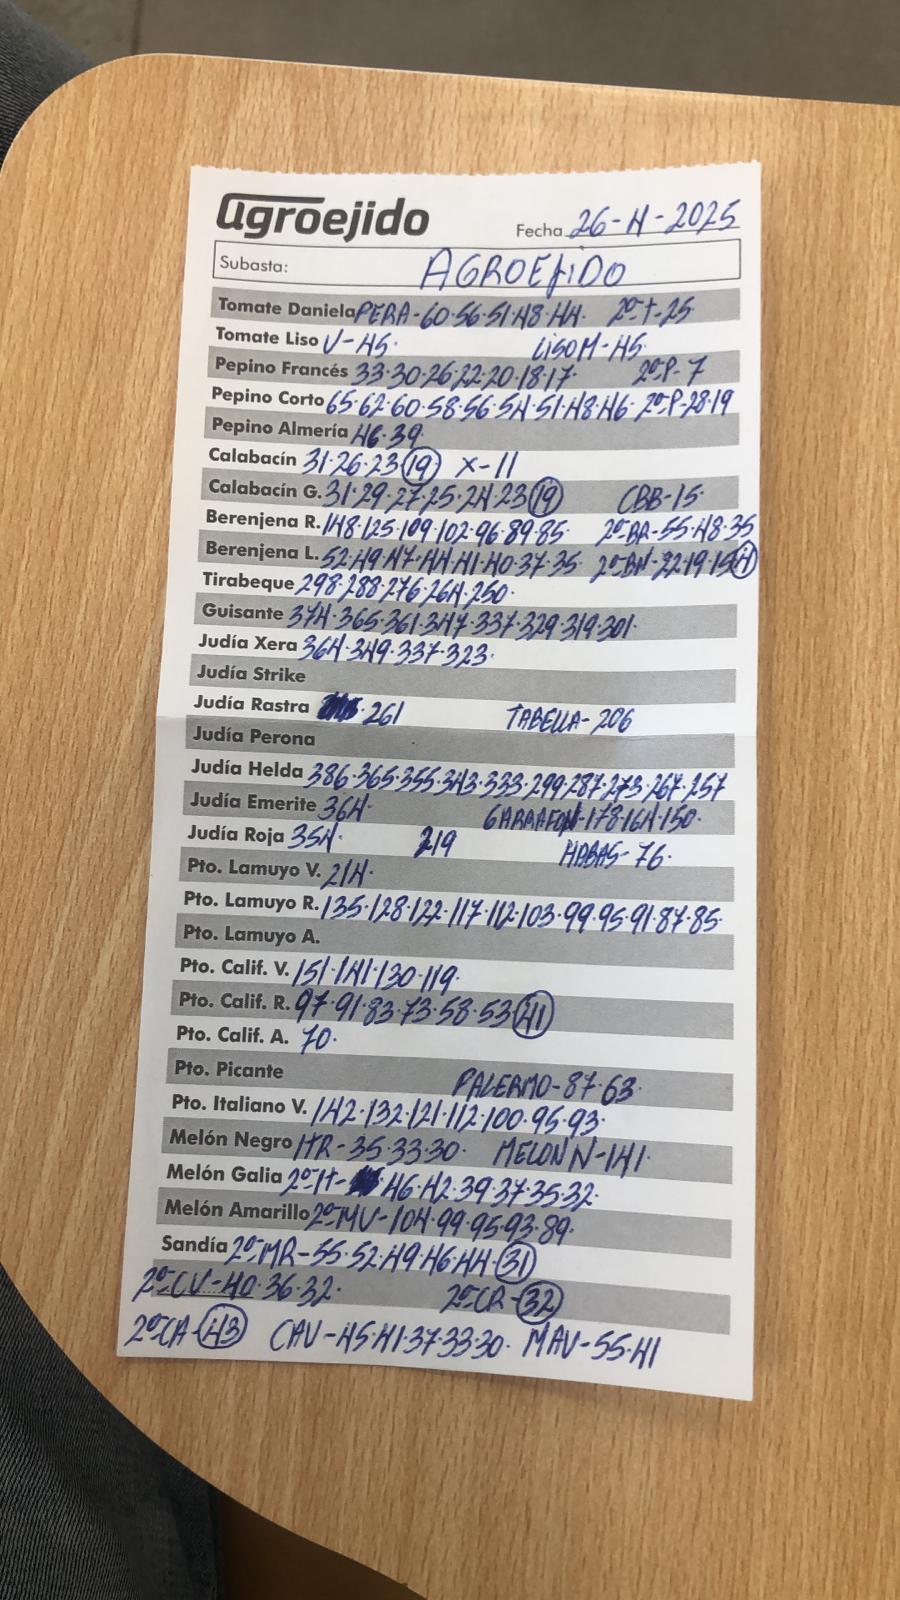 agroejido
Fecha 26-4-2025
Subasta: AGROEJIDO
Tomate Daniela PERA-60-56-51-48-44. 2ª-t-25
Tomate Liso V-45. LISO M-45.
Pepino Francés 33-30-26-22-20-18-17. 2ª-P-7
Pepino Corto 65-62-60-58-56-54-51-48-46- 2ª-P-28-19
Pepino Almería 46-39.
Calabacín 31-26-23 19 X-11
Calabacín G. 31-29-27-25-24-23 19 CBB-15.
Berenjena R. 148-125-109-102-96-89-85. 2ª-BR-55-48-35
Berenjena L. 52-49-47-44-41-40-37-35. 2ª-BN-22-19-15 4
Tirabeque 298-288-276-264-250.
Guisante 374-365-361-347-337-329-319-301.
Judía Xera 364-349-337-323.
Judía Strike
Judía Rastra 261 TABELLA-206
Judía Perona
Judía Helda 386-365-355-343-333-299-287-273-267-257
Judía Emerite 364. GARRAFON-178-164-150.
Judía Roja 354. 219 HABAS-76.
Pto. Lamuyo V. 214.
Pto. Lamuyo R. 135-128-122-117-112-103-99-95-91-87-85.
Pto. Lamuyo A.
Pto. Calif. V. 151-141-130-119.
Pto. Calif. R. 97-91-83-73-58-53 41
Pto. Calif. A. 70.
Pto. Picante PALERMO-87-63.
Pto. Italiano V. 142-132-121-112-100-95-93.
Melón Negro ITR-35-33-30. MELON N-141.
Melón Galia 2ª-It- 46-42-39-37-35-32.
Melón Amarillo 2ª-MV-104-99-95-93-89.
Sandía 2ª-MR-55-52-49-46-44- 31
2ª-CV-40-36-32. 2ª-CR- 32
2ª-CA- 43 CAV-45-41-37-33-30. MAV-55-41